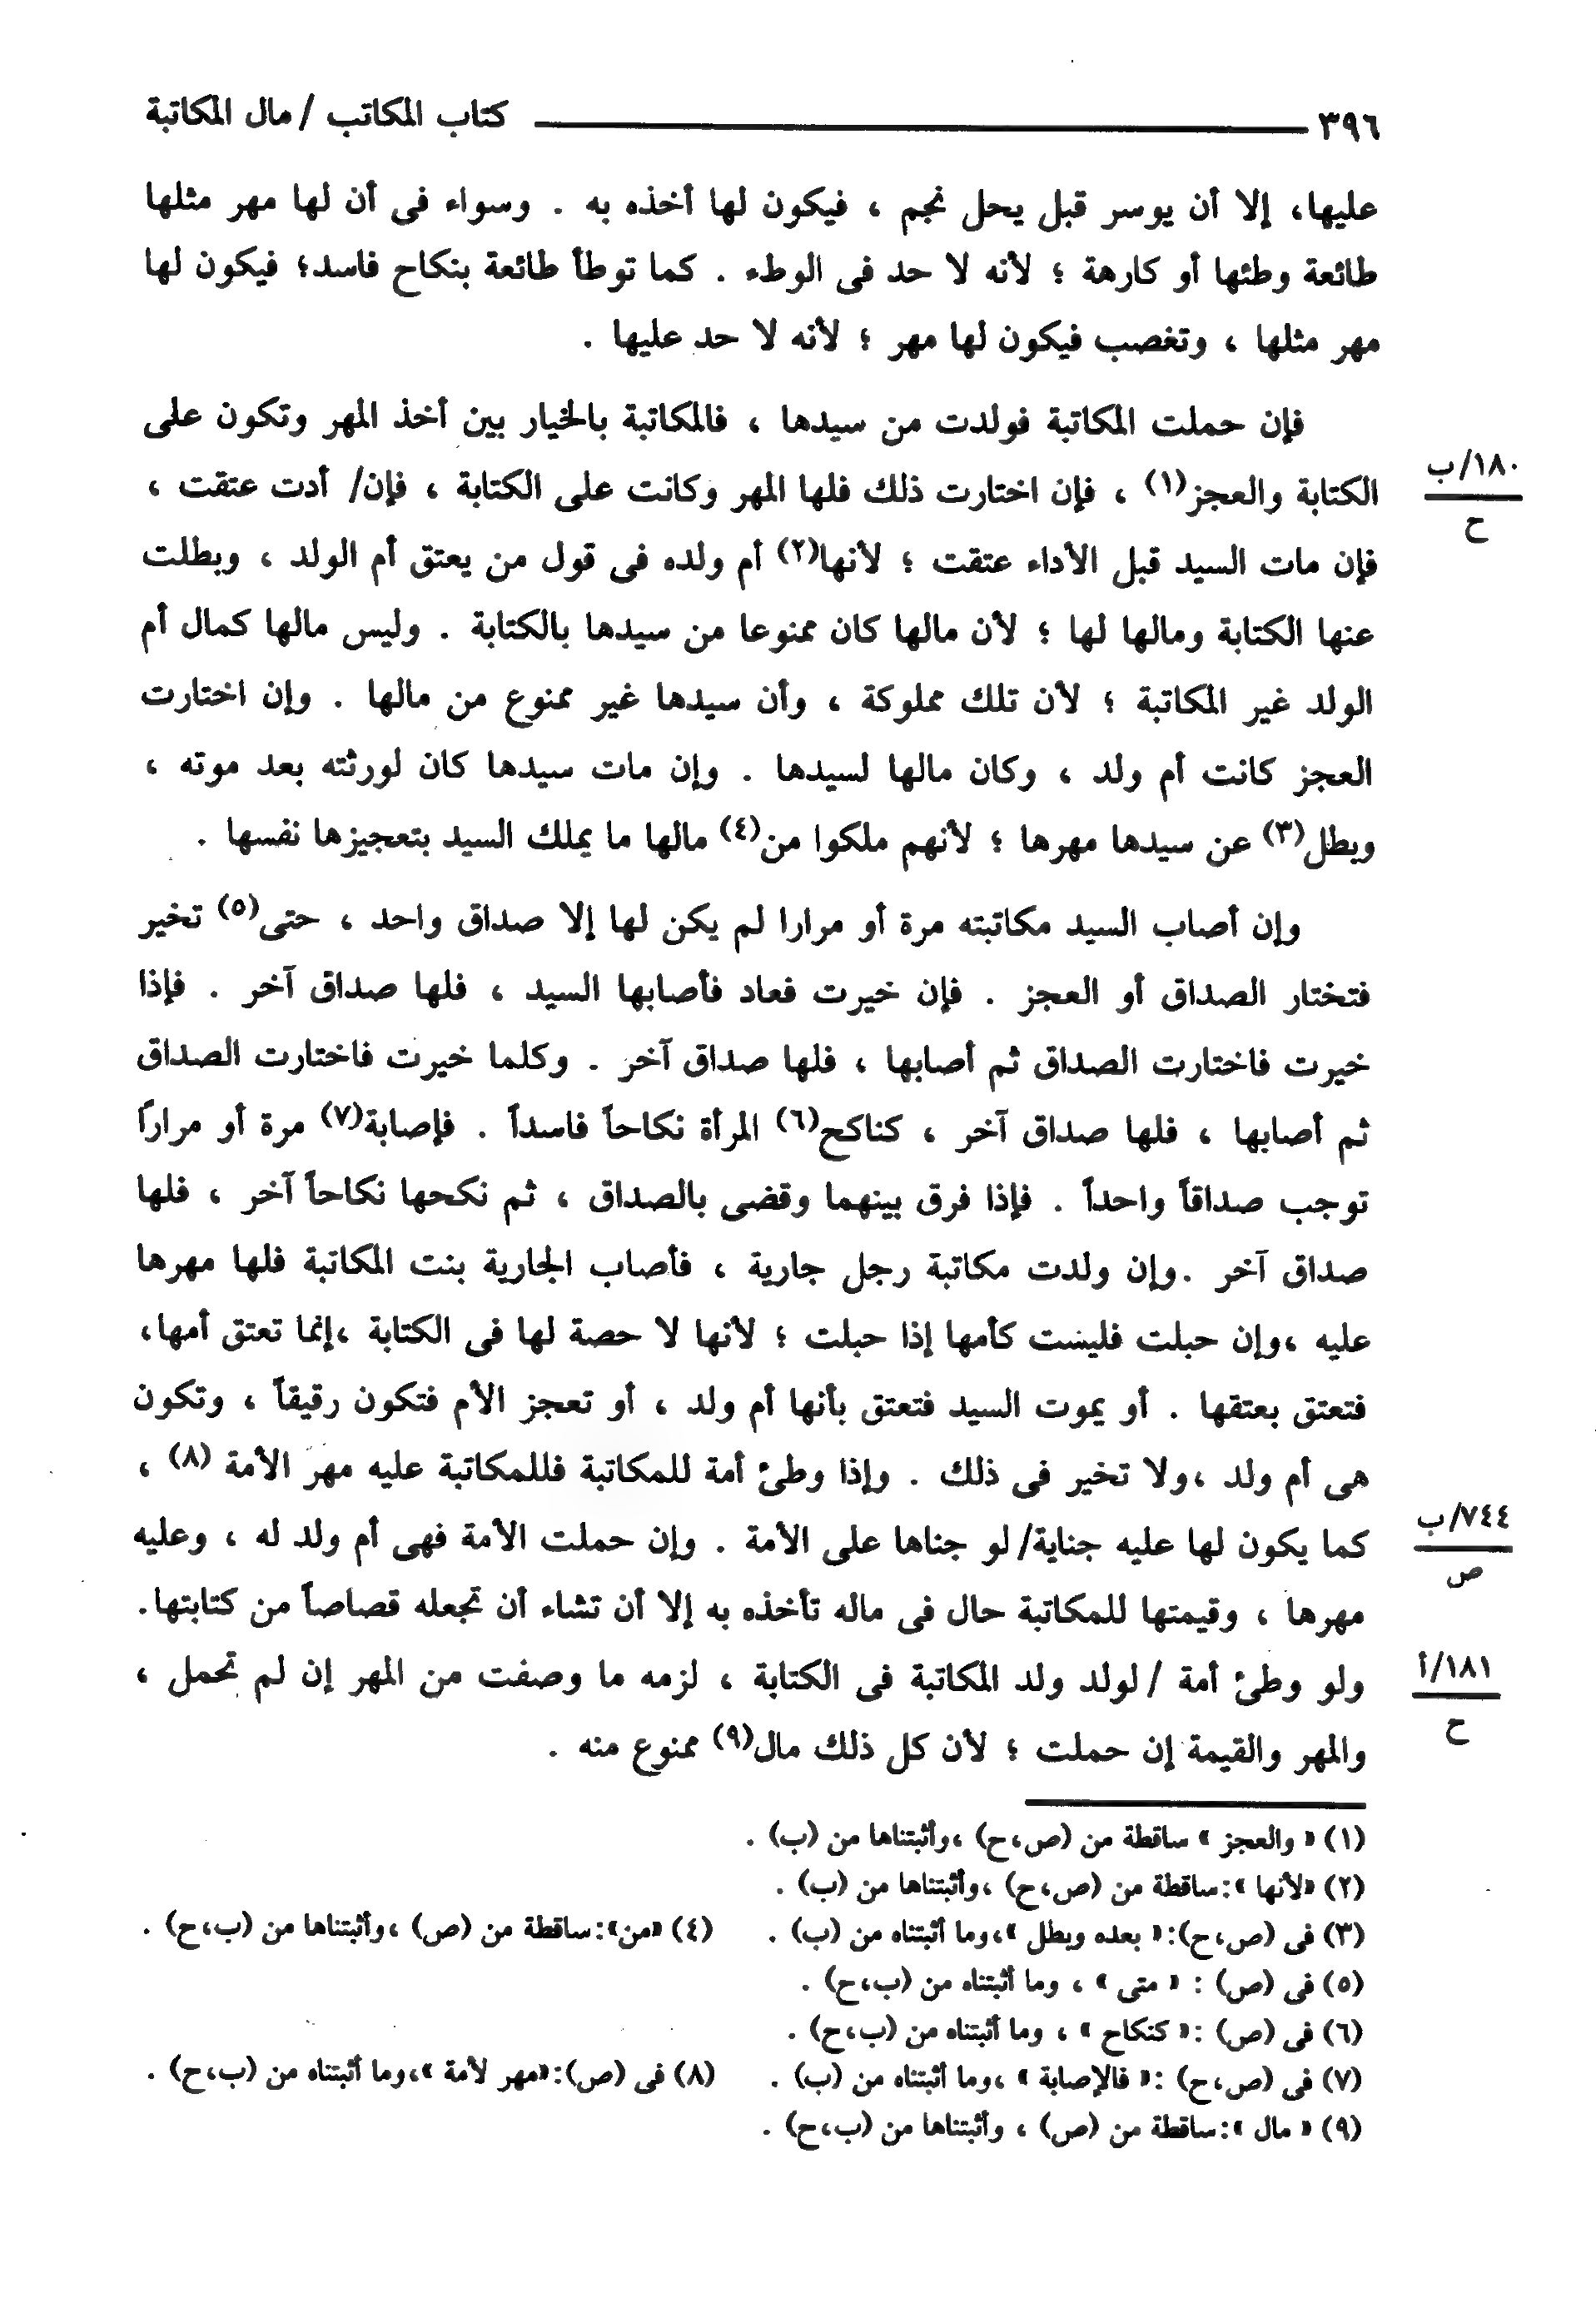 ٣٩٦ كتاب المكاتب / مال المكاتبة
عليها، إلا أن يوسر قبل يحل نجم ، فيكون لها أخذه به . وسواء فى أن لها مهر مثلها
طائعة وطئها أو كارهة ؛ لأنه لا حد فى الوطء . كما توطأ طائعة بنكاح فاسد؛ فيكون لها
مهر مثلها ، وتغصب فيكون لها مهر ؛ لأنه لا حد عليها .
فإن حملت المكاتبة فولدت من سيدها ، فالمكاتبة بالخيار بين أخذ المهر وتكون على
١٨٠/ب
ح
الكتابة والعجز(١) ، فإن اختارت ذلك فلها المهر وكانت على الكتابة ، فإن/ أدت عتقت ،
فإن مات السيد قبل الأداء عتقت ؛ لأنها(٢) أم ولده فى قول من يعتق أم الولد ، وبطلت
عنها الكتابة ومالها لها ؛ لأن مالها كان ممنوعا من سيدها بالكتابة . وليس مالها كمال أم
الولد غير المكاتبة ؛ لأن تلك مملوكة ، وأن سيدها غير ممنوع من مالها . وإن اختارت
العجز كانت أم ولد ، وكان مالها لسيدها . وإن مات سيدها كان لورثته بعد موته ،
وبطل(٣) عن سيدها مهرها ؛ لأنهم ملكوا من(٤) مالها ما يملك السيد بتعجيزها نفسها .
وإن أصاب السيد مكاتبته مرة أو مرارا لم يكن لها إلا صداق واحد ، حتى(٥) تخير
فتختار الصداق أو العجز . فإن خيرت فعاد فأصابها السيد ، فلها صداق آخر . فإذا
خيرت فاختارت الصداق ثم أصابها ، فلها صداق آخر . وكلما خيرت فاختارت الصداق
ثم أصابها ، فلها صداق آخر ، كناكح(٦) المرأة نكاحاً فاسداً . فإصابة(٧) مرة أو مراراً
توجب صداقاً واحداً . فإذا فرق بينهما وقضى بالصداق ، ثم نكحها نكاحاً آخر ، فلها
صداق آخر .وإن ولدت مكاتبة رجل جارية ، فأصاب الجارية بنت المكاتبة فلها مهرها
عليه ،وإن حبلت فليست كأمها إذا حبلت ؛ لأنها لا حصة لها فى الكتابة ،إنما تعتق أمها،
فتعتق بعتقها . أو يموت السيد فتعتق بأنها أم ولد ، أو تعجز الأم فتكون رقيقاً ، وتكون
هى أم ولد ،ولا تخير فى ذلك . وإذا وطئ أمة للمكاتبة فللمكاتبة عليه مهر الأمة (٨) ،
٧٤٤/ب
ص
كما يكون لها عليه جناية/ لو جناها على الأمة . وإن حملت الأمة فهى أم ولد له ، وعليه
مهرها ، وقيمتها للمكاتبة حال فى ماله تأخذه به إلا أن تشاء أن تجعله قصاصاً من كتابتها.
١٨١/أ
ح
ولو وطئ أمة / لولد ولد المكاتبة فى الكتابة ، لزمه ما وصفت من المهر إن لم تحمل ،
والمهر والقيمة إن حملت ؛ لأن كل ذلك مال(٩) ممنوع منه .
(١) « والعجز » ساقطة من (ص،ح) ،وأثبتناها من (ب) .
(٢) «لأنها »:ساقطة من (ص،ح) ،وأثبتناها من (ب) .
(٣) فى (ص،ح):« بعده وبطل »،وما أثبتناه من (ب) . (٤) «من»:ساقطة من (ص) ،وأثبتناها من (ب،ح) .
(٥) فى (ص) : « متى » ، وما أثبتناه من (ب،ح) .
(٦) فى (ص) :« كنكاح » ، وما أثبتناه من (ب،ح) .
(٧) فى (ص،ح) :« فالإصابة » ،وما أثبتناه من (ب) . (٨) فى (ص):«مهر لأمة »،وما أثبتناه من (ب،ح) .
(٩) « مال »:ساقطة من (ص) ، وأثبتناها من (ب،ح) .